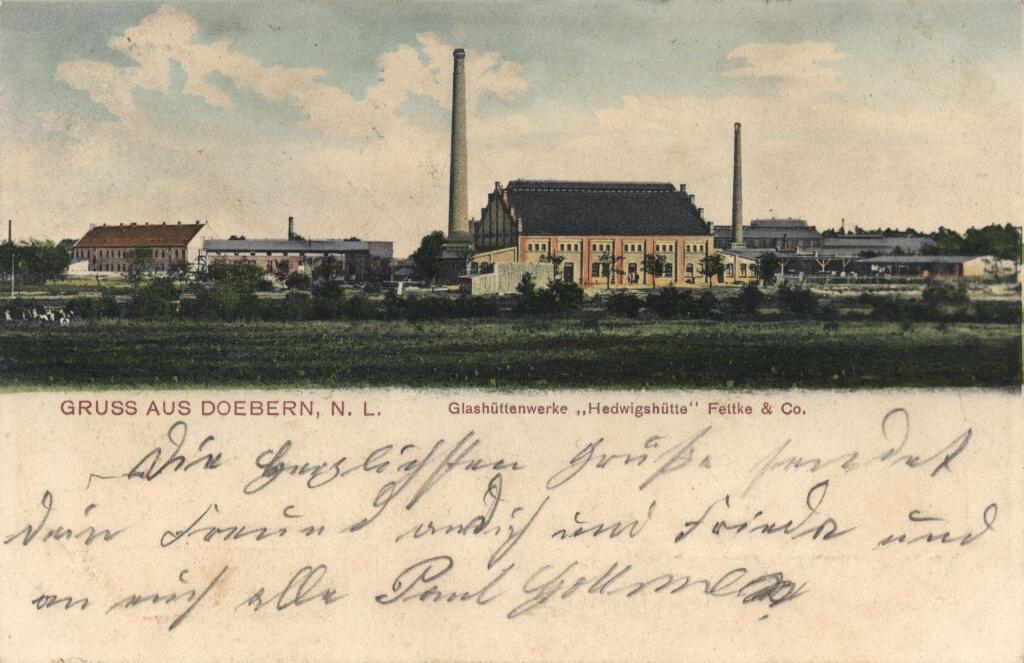 GRUSS AUS DOEBERN, N. L. Glashüttenwerke „Hedwigshütte" Fettke & Co.
Die herzlichsten Grüße sendet
dein Freund an dich und Frieda und
an euch alle Paul